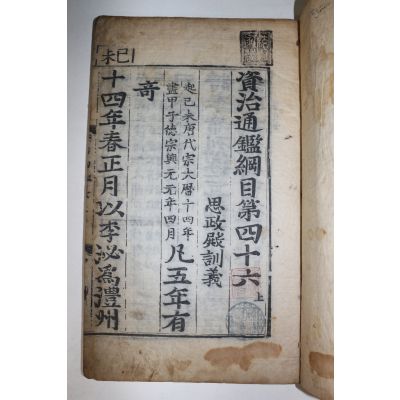 資治通鑑綱目第四十六上
思政殿訓義
起己未唐代宗大曆十四年
盡甲子德宗興元元年四月
凡五年有
奇
己未
十四年春正月以李泌為澧州